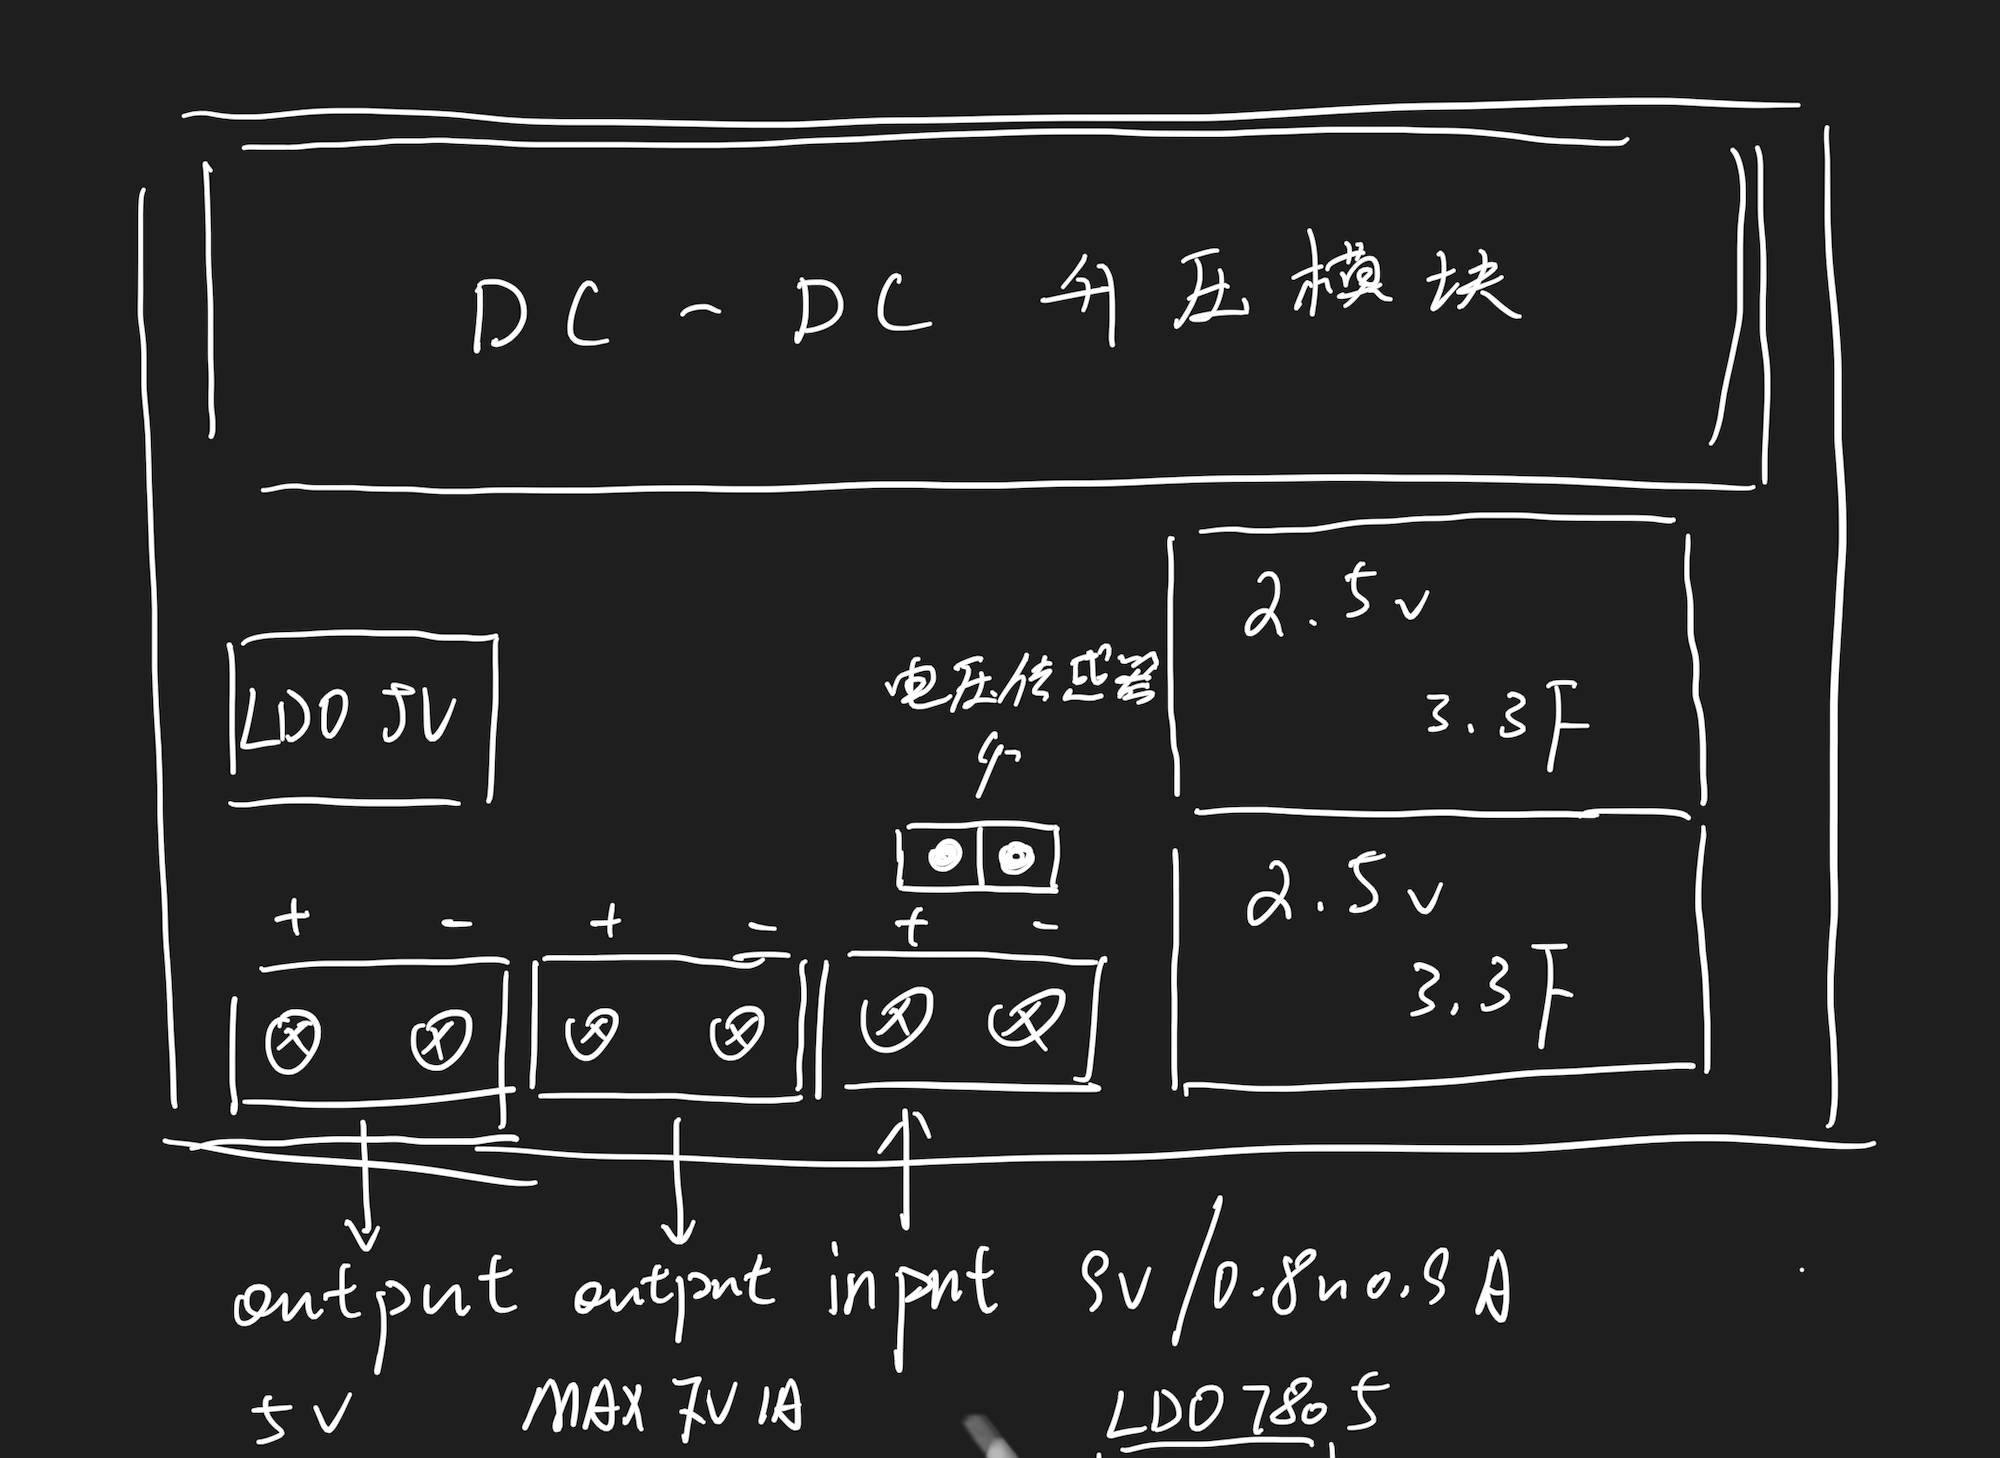 DC-DC 升压模块
2.5v
3.3F
LDO 5V
电压传感器
2.5v
3.3F
+ - + - + -
output output input 9V/0.8~0.9A
5V MAX 7V 1A LDO 7805